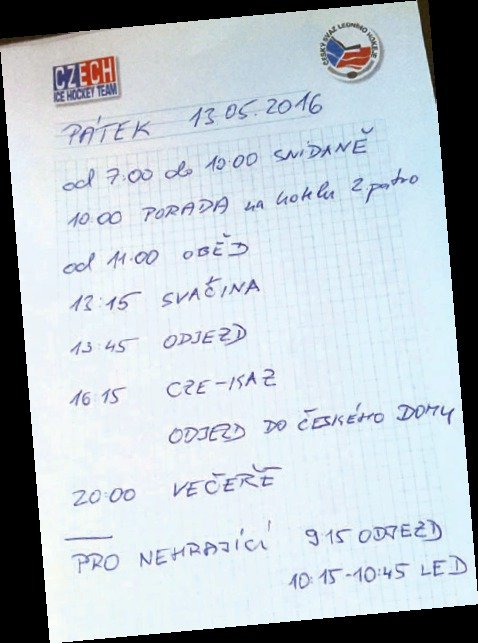 CZECH
ICE HOCKEY TEAM
ČESKÝ SVAZ LEDNÍHO HOKEJE
PÁTEK 13.05.2016
od 7:00 do 10:00 SNÍDANĚ
10:00 PORADA na hotelu 2 patro
od 11:00 OBĚD
13:15 SVAČINA
13:45 ODJEZD
16:15 CZE-KAZ
ODJEZD DO ČESKÉHO DOMU
20:00 VEČEŘE
PRO NEHRAJÍCÍ 9 15 ODJEZD
10:15-10:45 LED